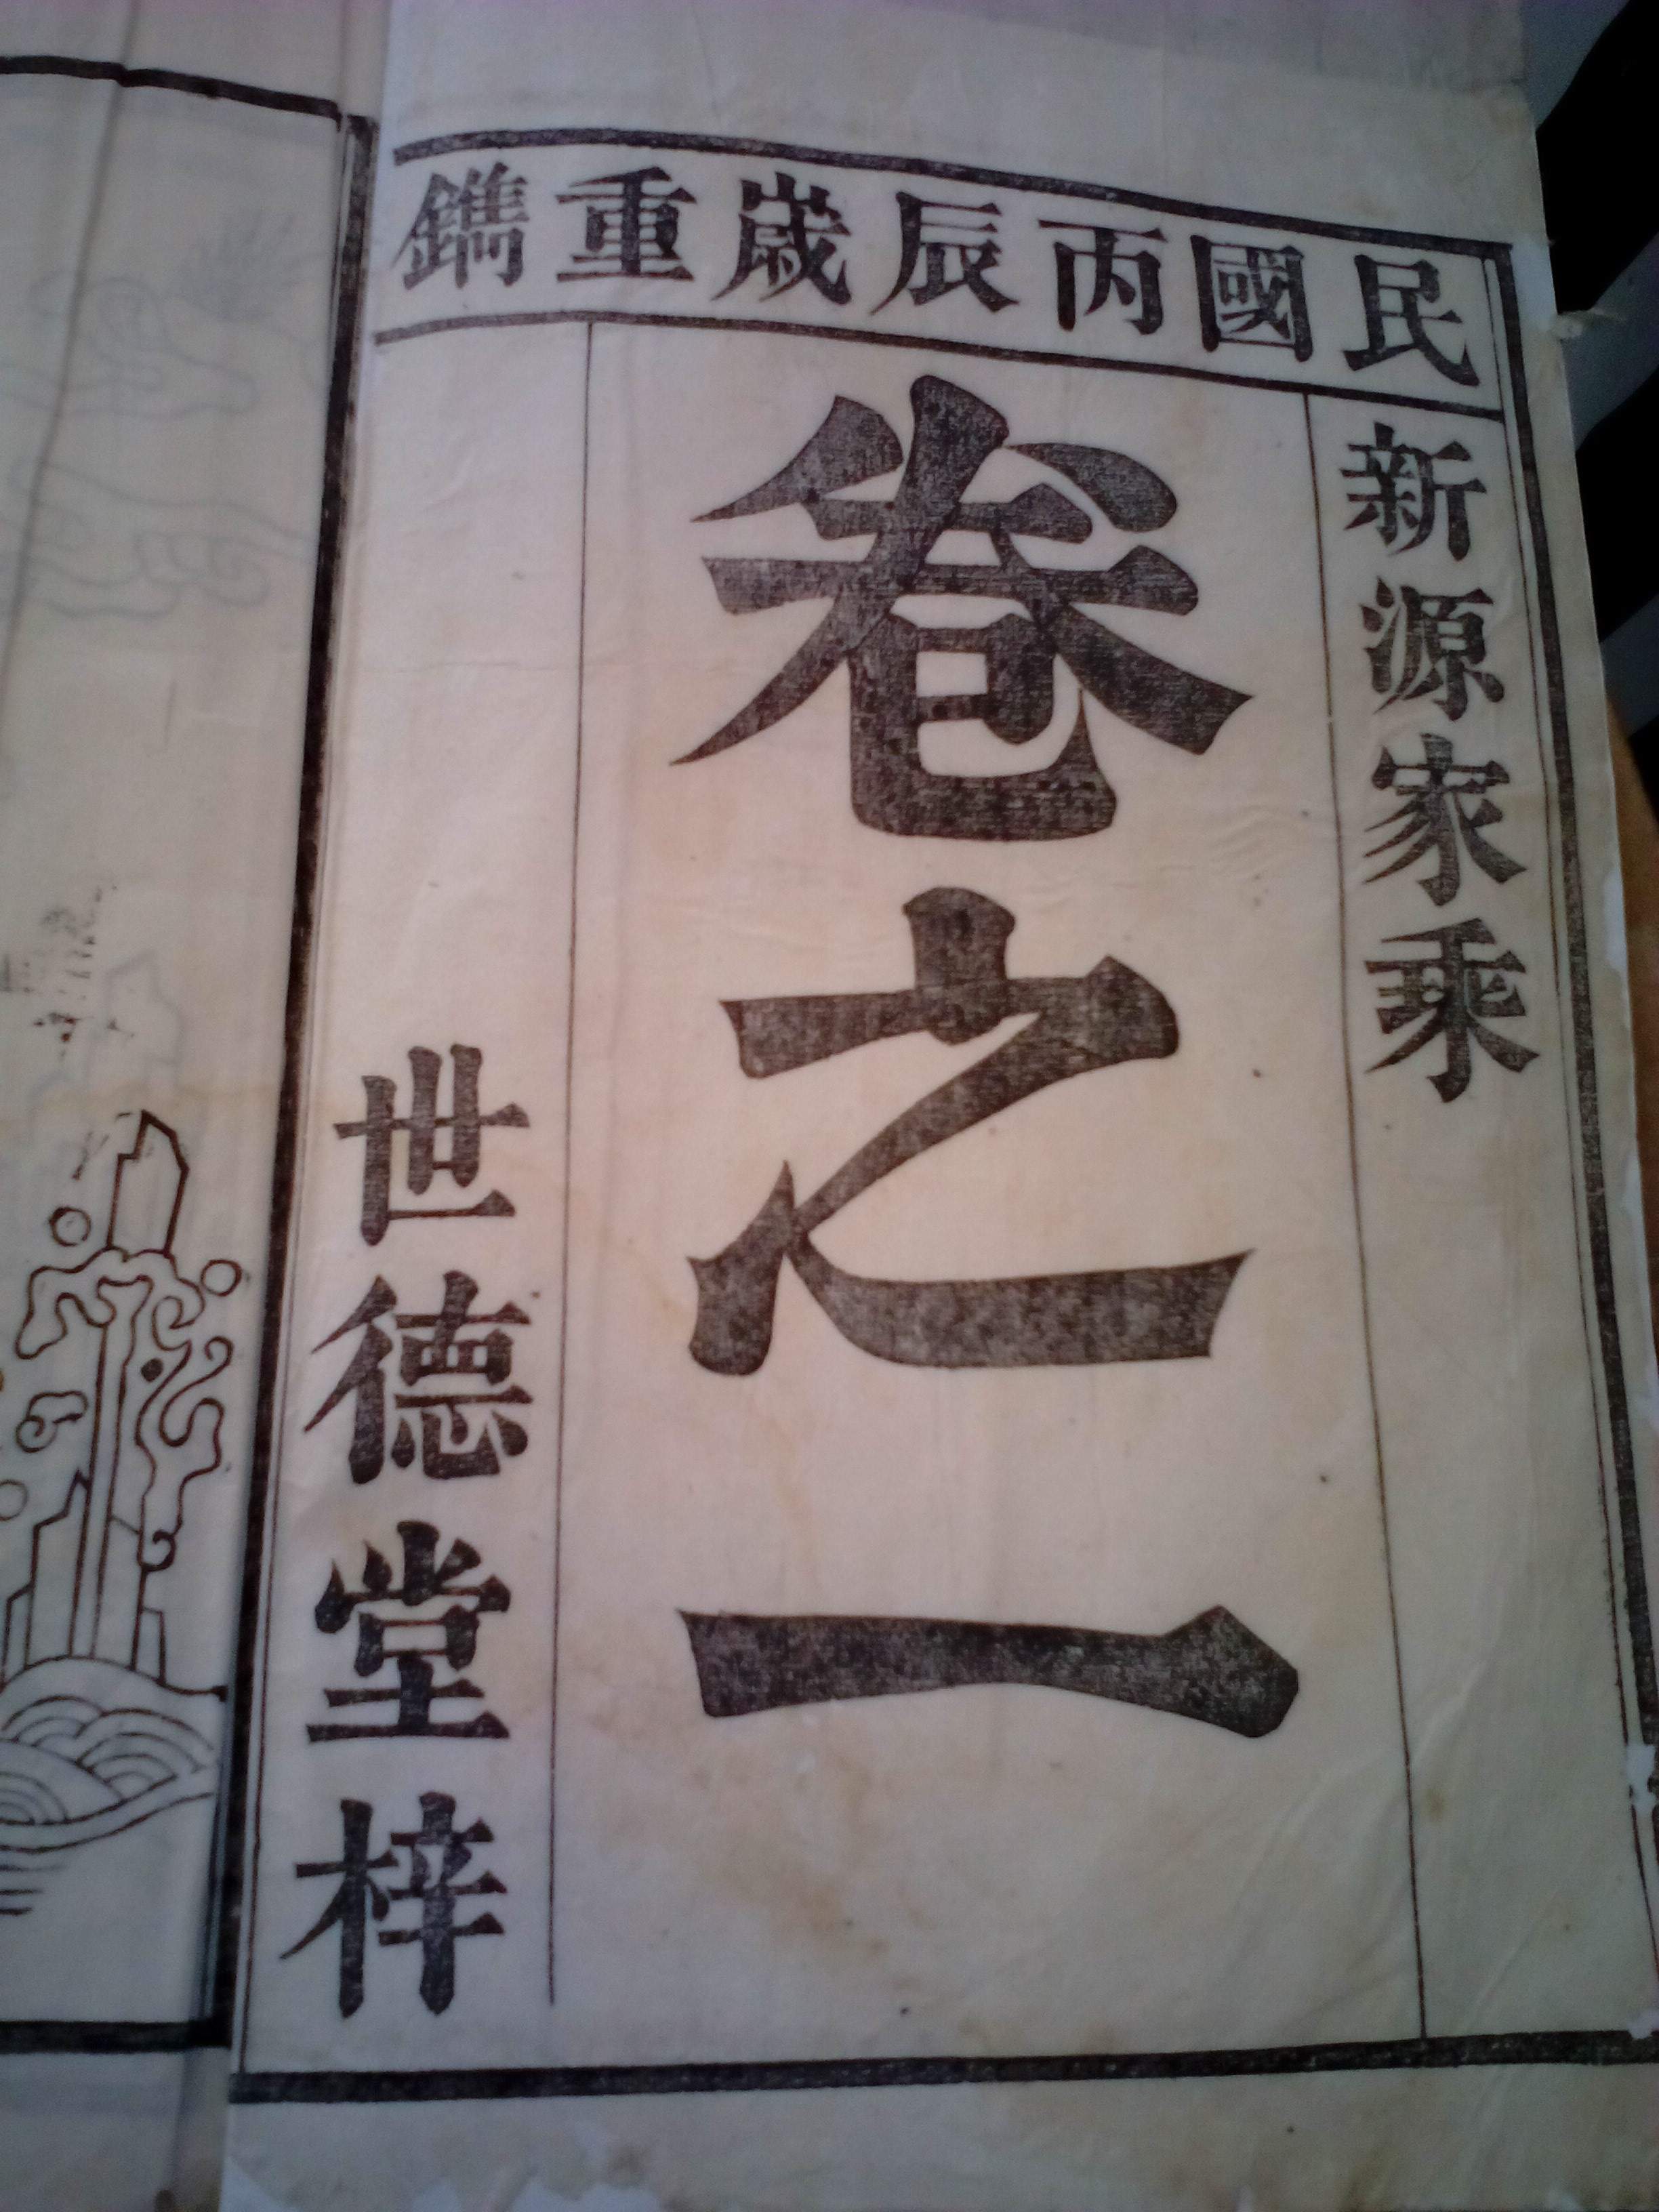 民國丙辰歲重鐫
新源家乘
卷之一
世德堂梓